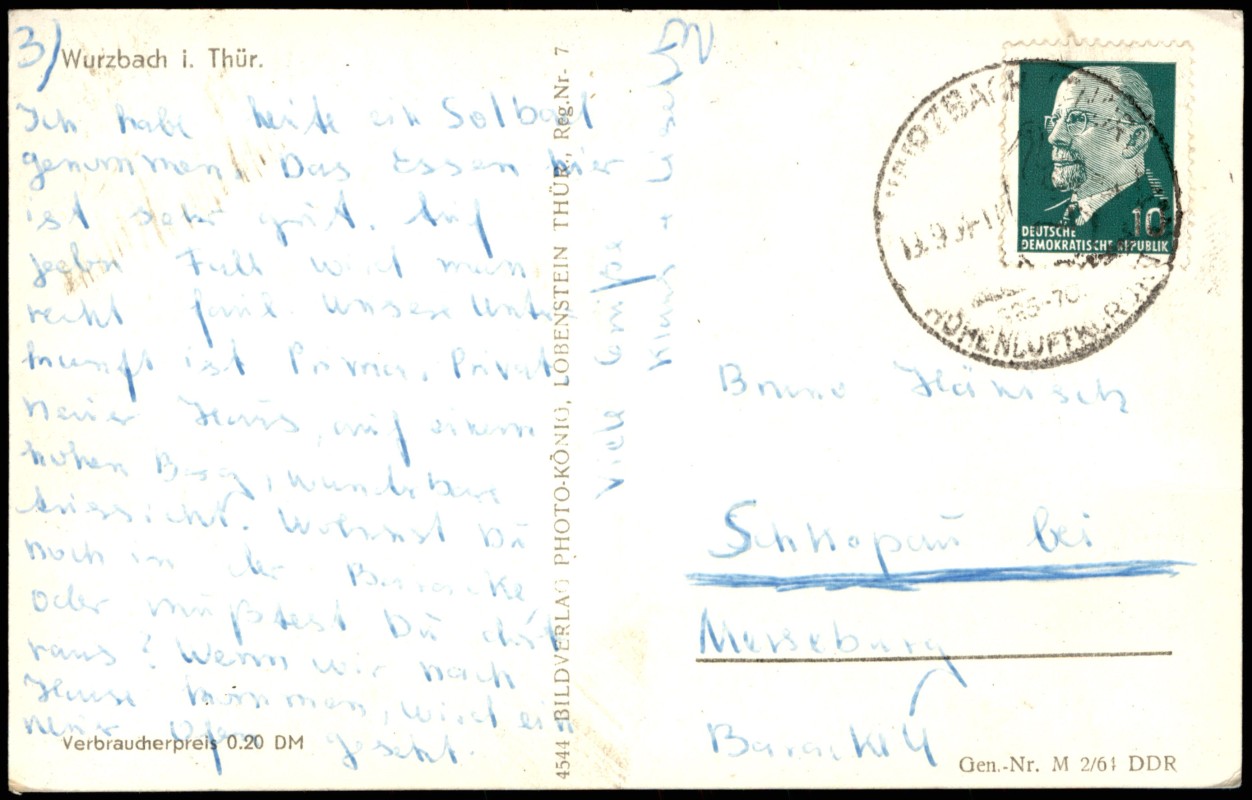 3)
Wurzbach i. Thür.
Ich habe heute ein Solbad
genommen. Das Essen hier
ist sehr gut. Auf
jeden Fall wird man
recht faul. Unsere Unter
kunft ist Prima, Privat
neues Haus, auf einem
hohen Berg, wunderbare
Aussicht. Wohnst Du
noch in der Baracke,
oder mußtest Du dort
raus? Wenn wir nach
Hause kommen, wird ein
neuer Ofen gesetzt.
Verbraucherpreis 0.20 DM
4544 BILDVERLAG PHOTO-KÖNIG, LOBENSTEIN THÜR., Reg.Nr. 7
Viele Grüße
Klaus +
WURZBACH
HÖHENLUFTKURORT
10
DEUTSCHE
DEMOKRATISCHE REPUBLIK
Bruno
Schkopau bei
Merseburg
Baracke 4
Gen.-Nr. M 2/61 DDR